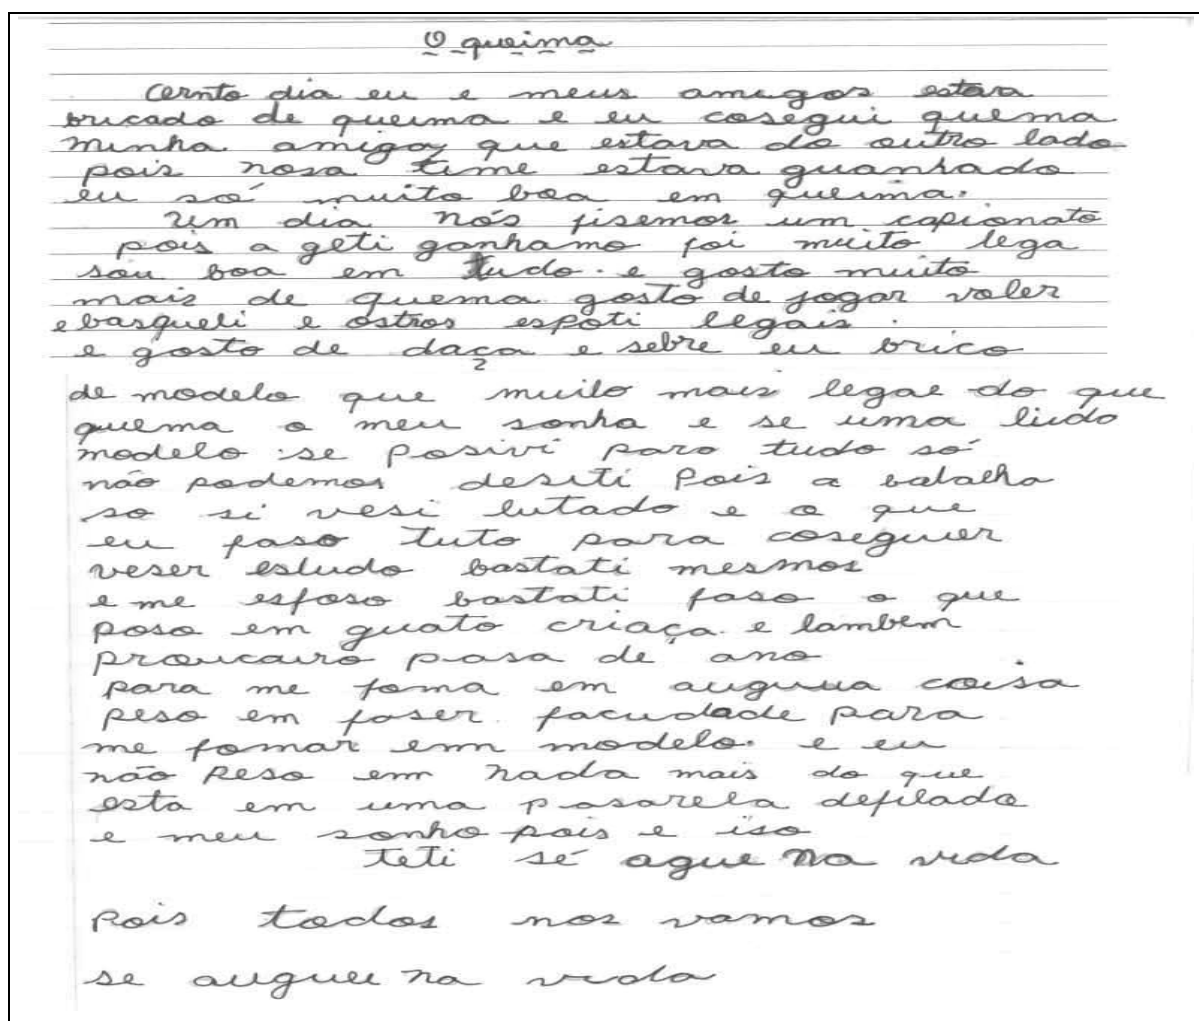 O queima
Cernto dia eu e meus amigos estava
bricado de queima e eu cosegui quema
minha amiga, que estava do outro lado
pois nosa time estava guanhado
eu só muito boa em queima.
Um dia nós fisemos um capionato
pois a geti ganhamo foi muito lega
sou boa em tudo. e gosto muito
mais de quema gosto de jogar voler
e basqueli e ostros espoti legais.
e gosto de daça e sebre eu brico
de modelo que muilo mais legae do que
quema o meu sonha e se uma liudo
modelo se posivi paro tudo só
não podemos desiti pois a batalha
so si vesi lutado e o que
eu faso tuto para coseguer
veser esludo bastati mesmos
e me esfoso bastati faso o que
poso em guato criaça. e lambem
proucauro pasa de ano
para me foma em auguua coisa
peso em faser facudade para
me fomar emm modelo. e eu
não peso em nada mais do que
esta em uma pasarela defilado
e meu sonho pois e iso
teti sé ague na vida
pois todos nos vamos
se auguei na vida